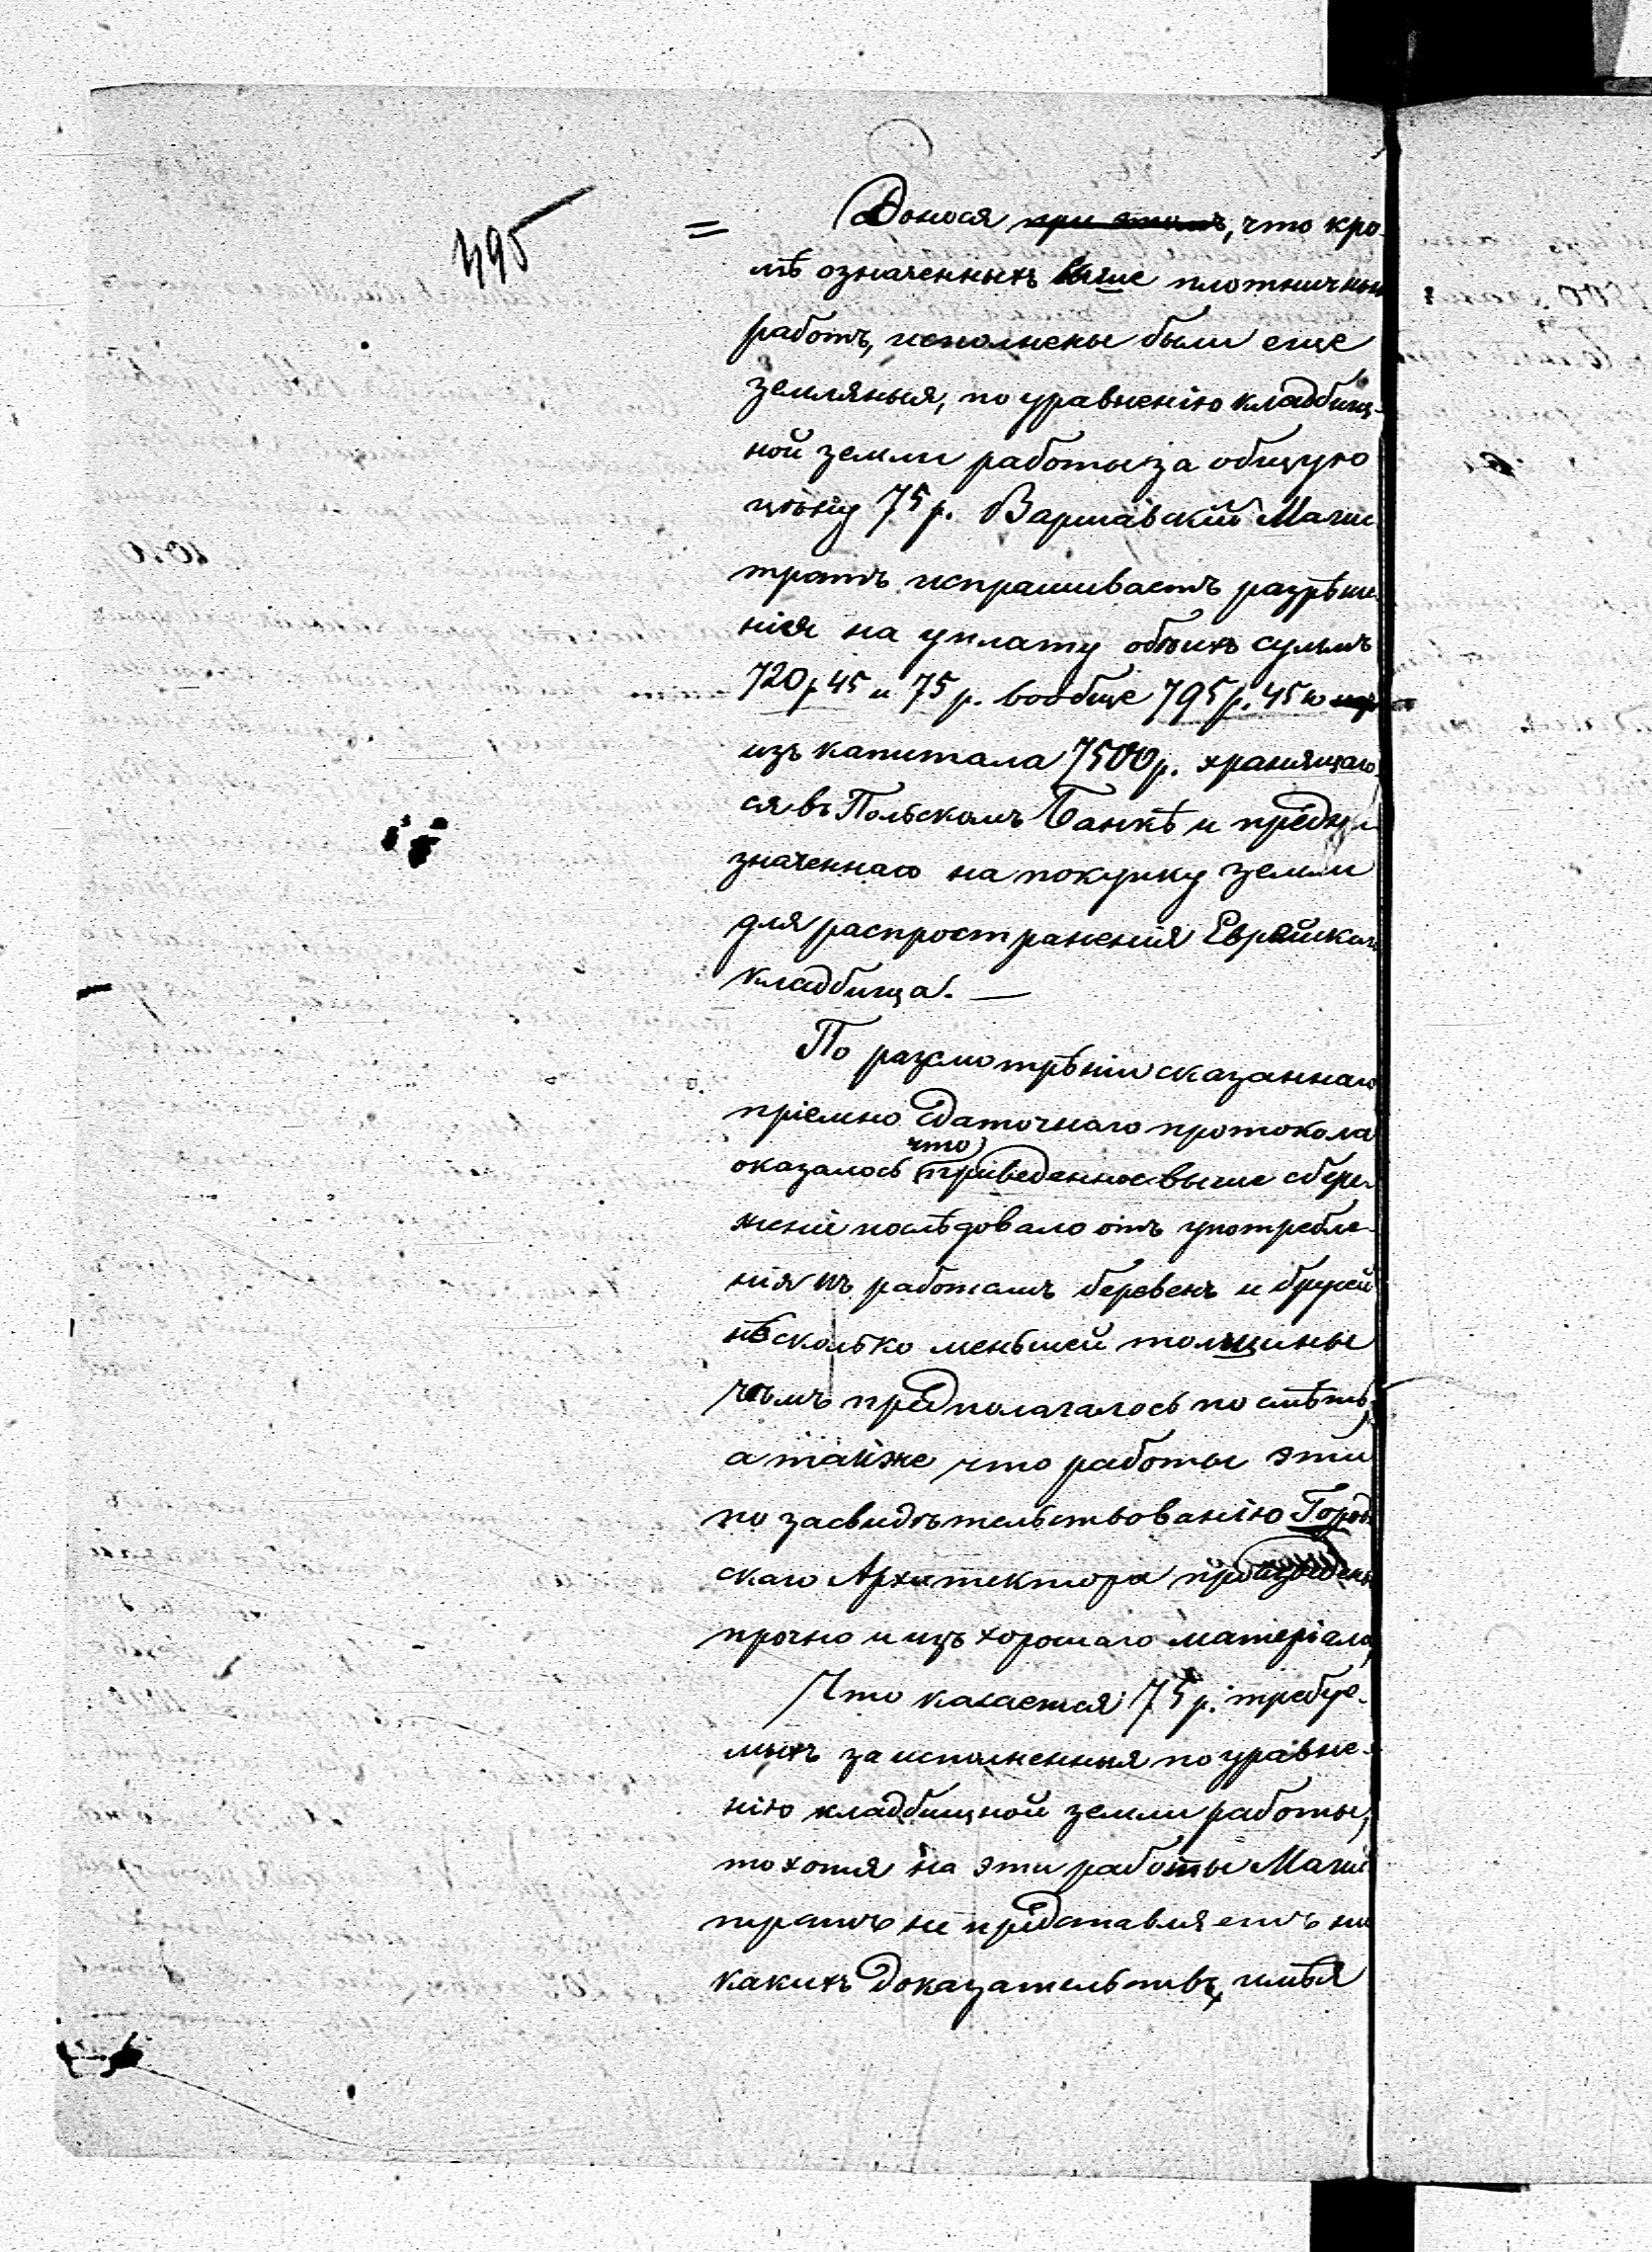 495
= Донося при этомъ, что кро-
мѣ означенныхъ выше плотничных
работъ, исполнены были еще
земляныя, по уравненію кладбищ-
ной земли работы за общую
цѣну 75 р. Варшавскій Магис
тратъ испрашиваетъ разрѣше-
нія на уплату обѣихъ суммъ
720 р 45 и 75 р. вообще 795 р. 45 к
изъ капитала 7500 р. хранящаго
ся въ Польскомъ Банкѣ и предна
значеннаго на покупку земли
для распространенія Еврейскаго
кладбища. —
По разсмотрѣніи сказаннаго
пріемно сдаточнаго протокола
что
оказалось приведенное выше сбере-
женіе послѣдовало отъ употребле-
нія къ работамъ беревенъ и брусей
нѣсколько меньшей толщины
чѣмъ предполагалось по смѣтѣ,
а также что работы эти
по засвидѣтельствованію Город
скаго Архитектора произведены
прочно и изъ хорошаго матеріала,
Что касается 75 р. требуе-
мыхъ за исполненныя по уравне-
нію кладбищной земли работы,
то хотя на эти работы Магис
тратъ не представляетъ ни
какихъ доказательствъ, имѣя